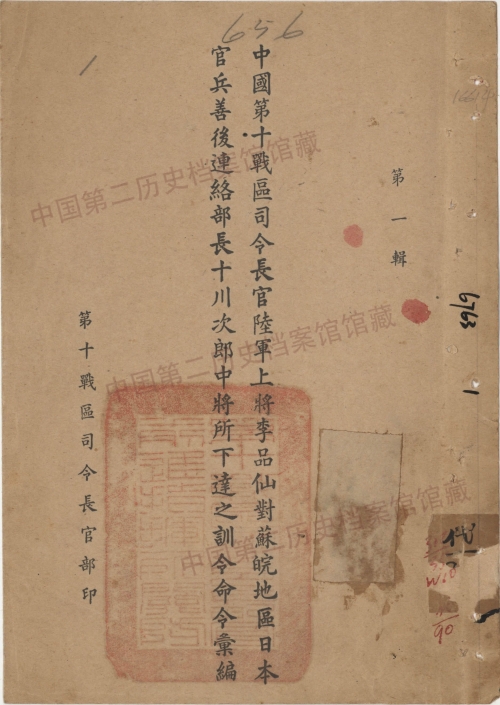 656
1
第一輯
中國第十戰區司令長官陸軍上將李品仙對蘇皖地區日本
官兵善後連絡部長十川次郎中將所下達之訓令命令彙編
第十戰區司令長官部印
6763
1
90
中国第二历史档案馆馆藏
中国第二历史档案馆馆藏
中国第二历史档案馆馆藏